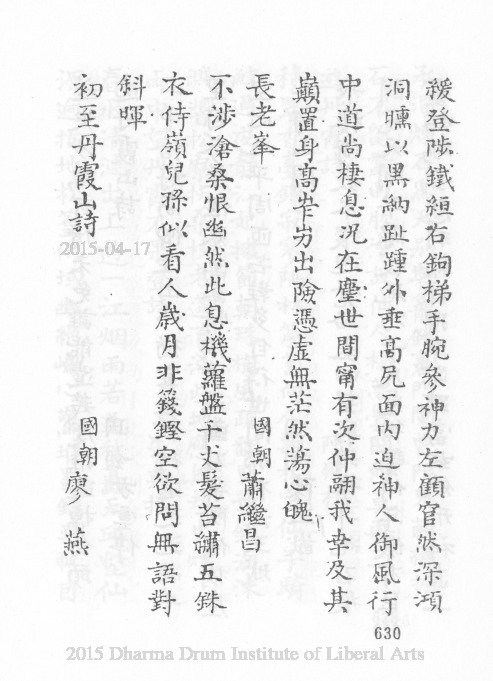 緩登陟鐵絙右鉤梯手腕參神力左顧窅然深澒
洞曛以黑納趾踵外垂高尻面內迫神人御風行
中道尚棲息況在塵世間甯有次仲翮我幸及其
巔置身高岝岃出險憑虛無茫然蕩心魄
長老峯 國朝蕭繼昌
不涉滄桑恨幽然此息機蘿盤千丈髮苔繡五銖
衣侍嶺兒孫似看人歲月非籛鏗空欲問無語對
斜暉
初至丹霞山詩 國朝廖 燕
2015-04-17
630
2015 Dharma Drum Institute of Liberal Arts